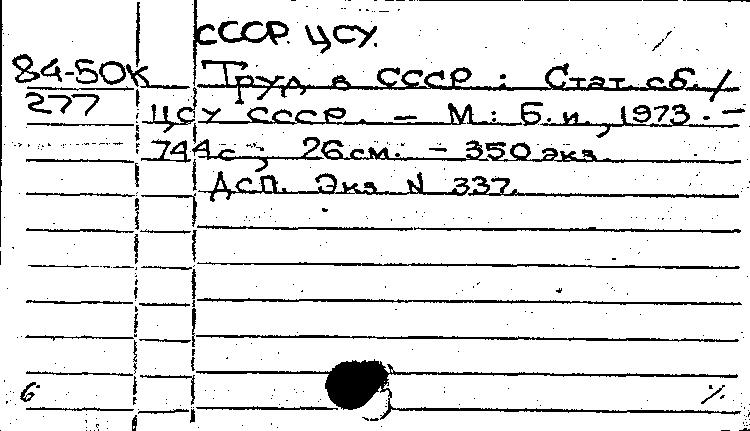 СССР. ЦСУ.
84-50К Труд в СССР : Стат. сб. /
277 ЦСУ СССР. – М. : Б. и., 1973. –
744 с ; 26 см. – 350 экз.
ДСП. Экз. N 337.
6